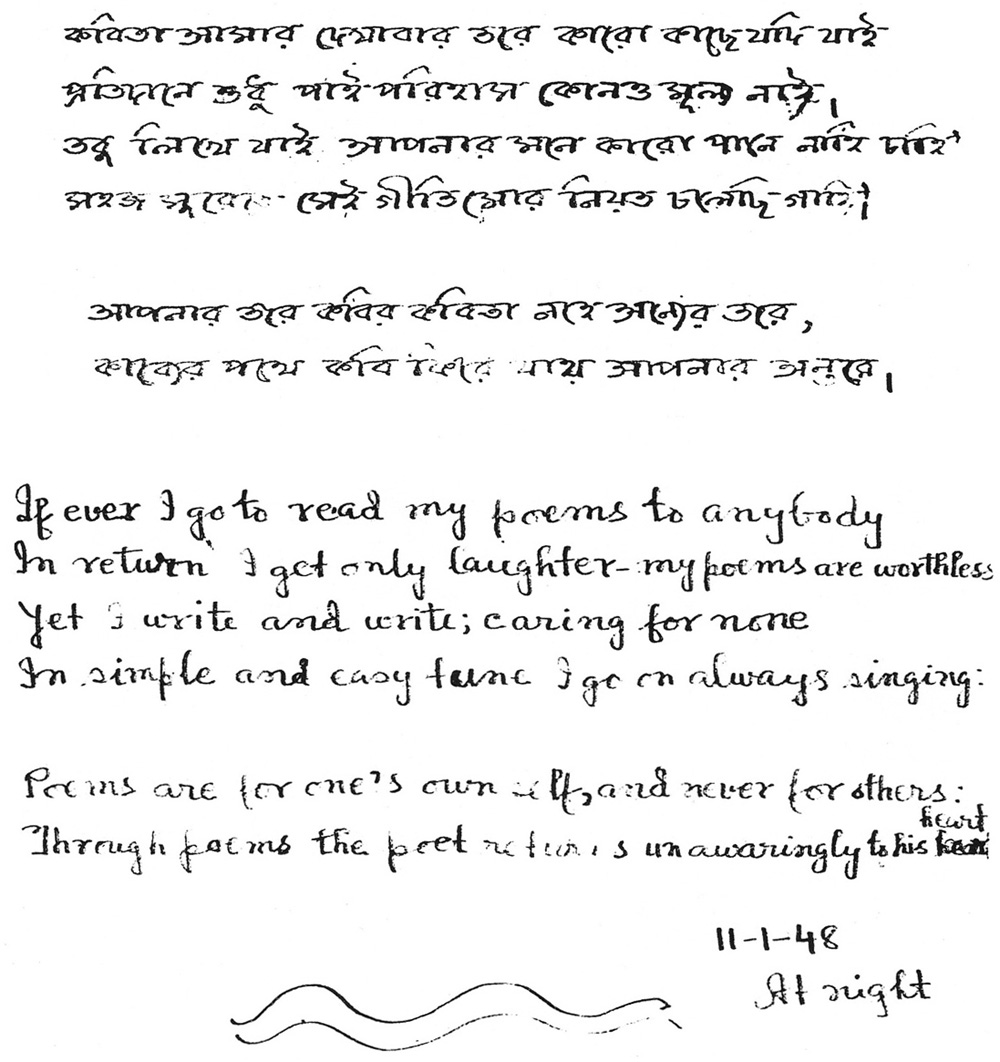 কবিতা আমার দেখাবার তরে কারো কাছে যদি যাই
প্রতিদানে শুধু পাই পরিহাস কোনও মূল্য নাই।
তবু লিখে যাই আপনার মনে কারো পানে নাহি চাহি'
সহজ সুরে সেই গীতি মোর নিয়ত চলেছি গাহি।
আপনার তরে কবির কবিতা নহে অন্যের তরে,
কাব্যের পথে কবি ফিরে যায় আপনার অন্তরে।
If ever I go to read my poems to anybody
In return I get only laughter- my poems are worthless
Yet I write and write; caring for none
In simple and easy tune I go on always singing:
Poems are for one's own self, and never for others:
Through poems the poet returns unawaringly to his heart
11-1-48
At night